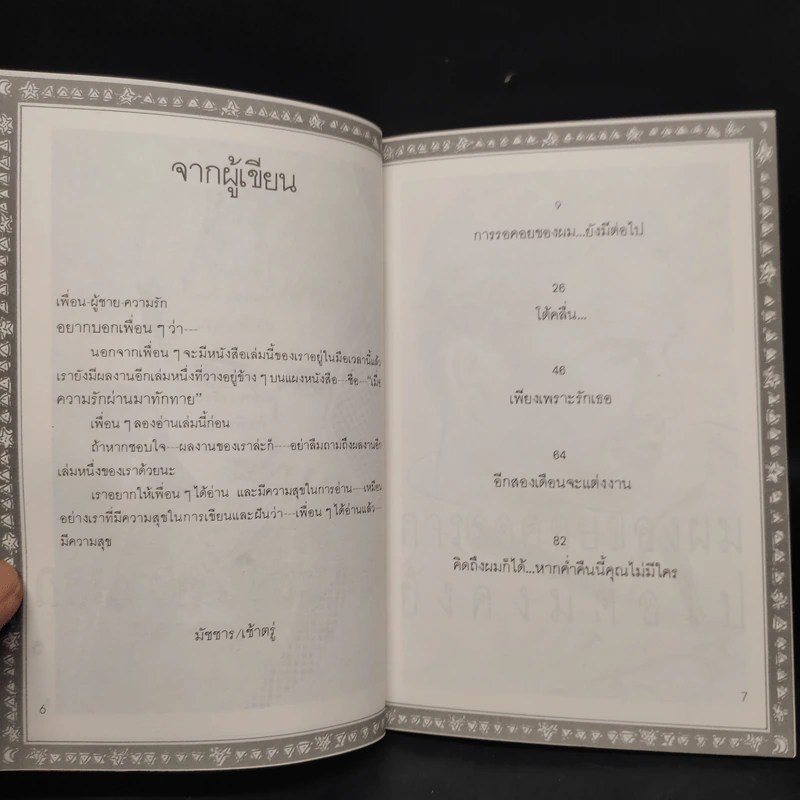 จากผู้เขียน
เพื่อน-ผู้ชาย-ความรัก
อยากบอกเพื่อน ๆ ว่า---
นอกจากเพื่อน ๆ จะมีหนังสือเล่มนี้ของเราอยู่ในมือเวลานี้แล้ว
เรายังมีผลงานอีกเล่มหนึ่งที่วางอยู่ข้าง ๆ บนแผงหนังสือ---ชื่อ---"เมื่อ
ความรักผ่านมาทักทาย"
เพื่อน ๆ ลองอ่านเล่มนี้ก่อน
ถ้าหากชอบใจ---ผลงานของเราล่ะก็---อย่าลืมถามถึงผลงานอีก
เล่มหนึ่งของเราด้วยนะ
เราอยากให้เพื่อน ๆ ได้อ่าน และมีความสุขในการอ่าน---เหมือน
อย่างเราที่มีความสุขในการเขียนและฝันว่า---เพื่อน ๆ ได้อ่านแล้ว---
มีความสุข
มัชชาร/เช้าตรู่
6
9
การรอคอยของผม...ยังมีต่อไป
26
โต้คลื่น...
46
เพียงเพราะรักเธอ
64
อีกสองเดือนจะแต่งงาน
82
คิดถึงผมก็ได้...หากค่ำคืนนี้คุณไม่มีใคร
7